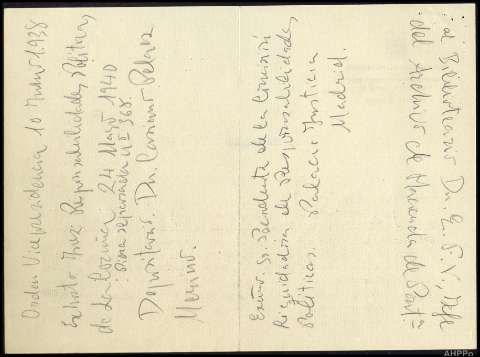 Orden Vicepresidencia 10 Junio 1938
Exhorto Juez Responsabilidades Políticas,
de La Coruña 24 Mayo 1940
Pieza separada nº 368.
Depositario. Dn. Casimiro Pelaez
Merino.
Excmo. Sr. Presidente de la Comisión
liquidadora de Responsabilidades
Políticas. Palacio Justicia
Madrid.
al Bibliotecario Dn. E. S. , Jefe
del Archivo de Hacienda de
AHPPo